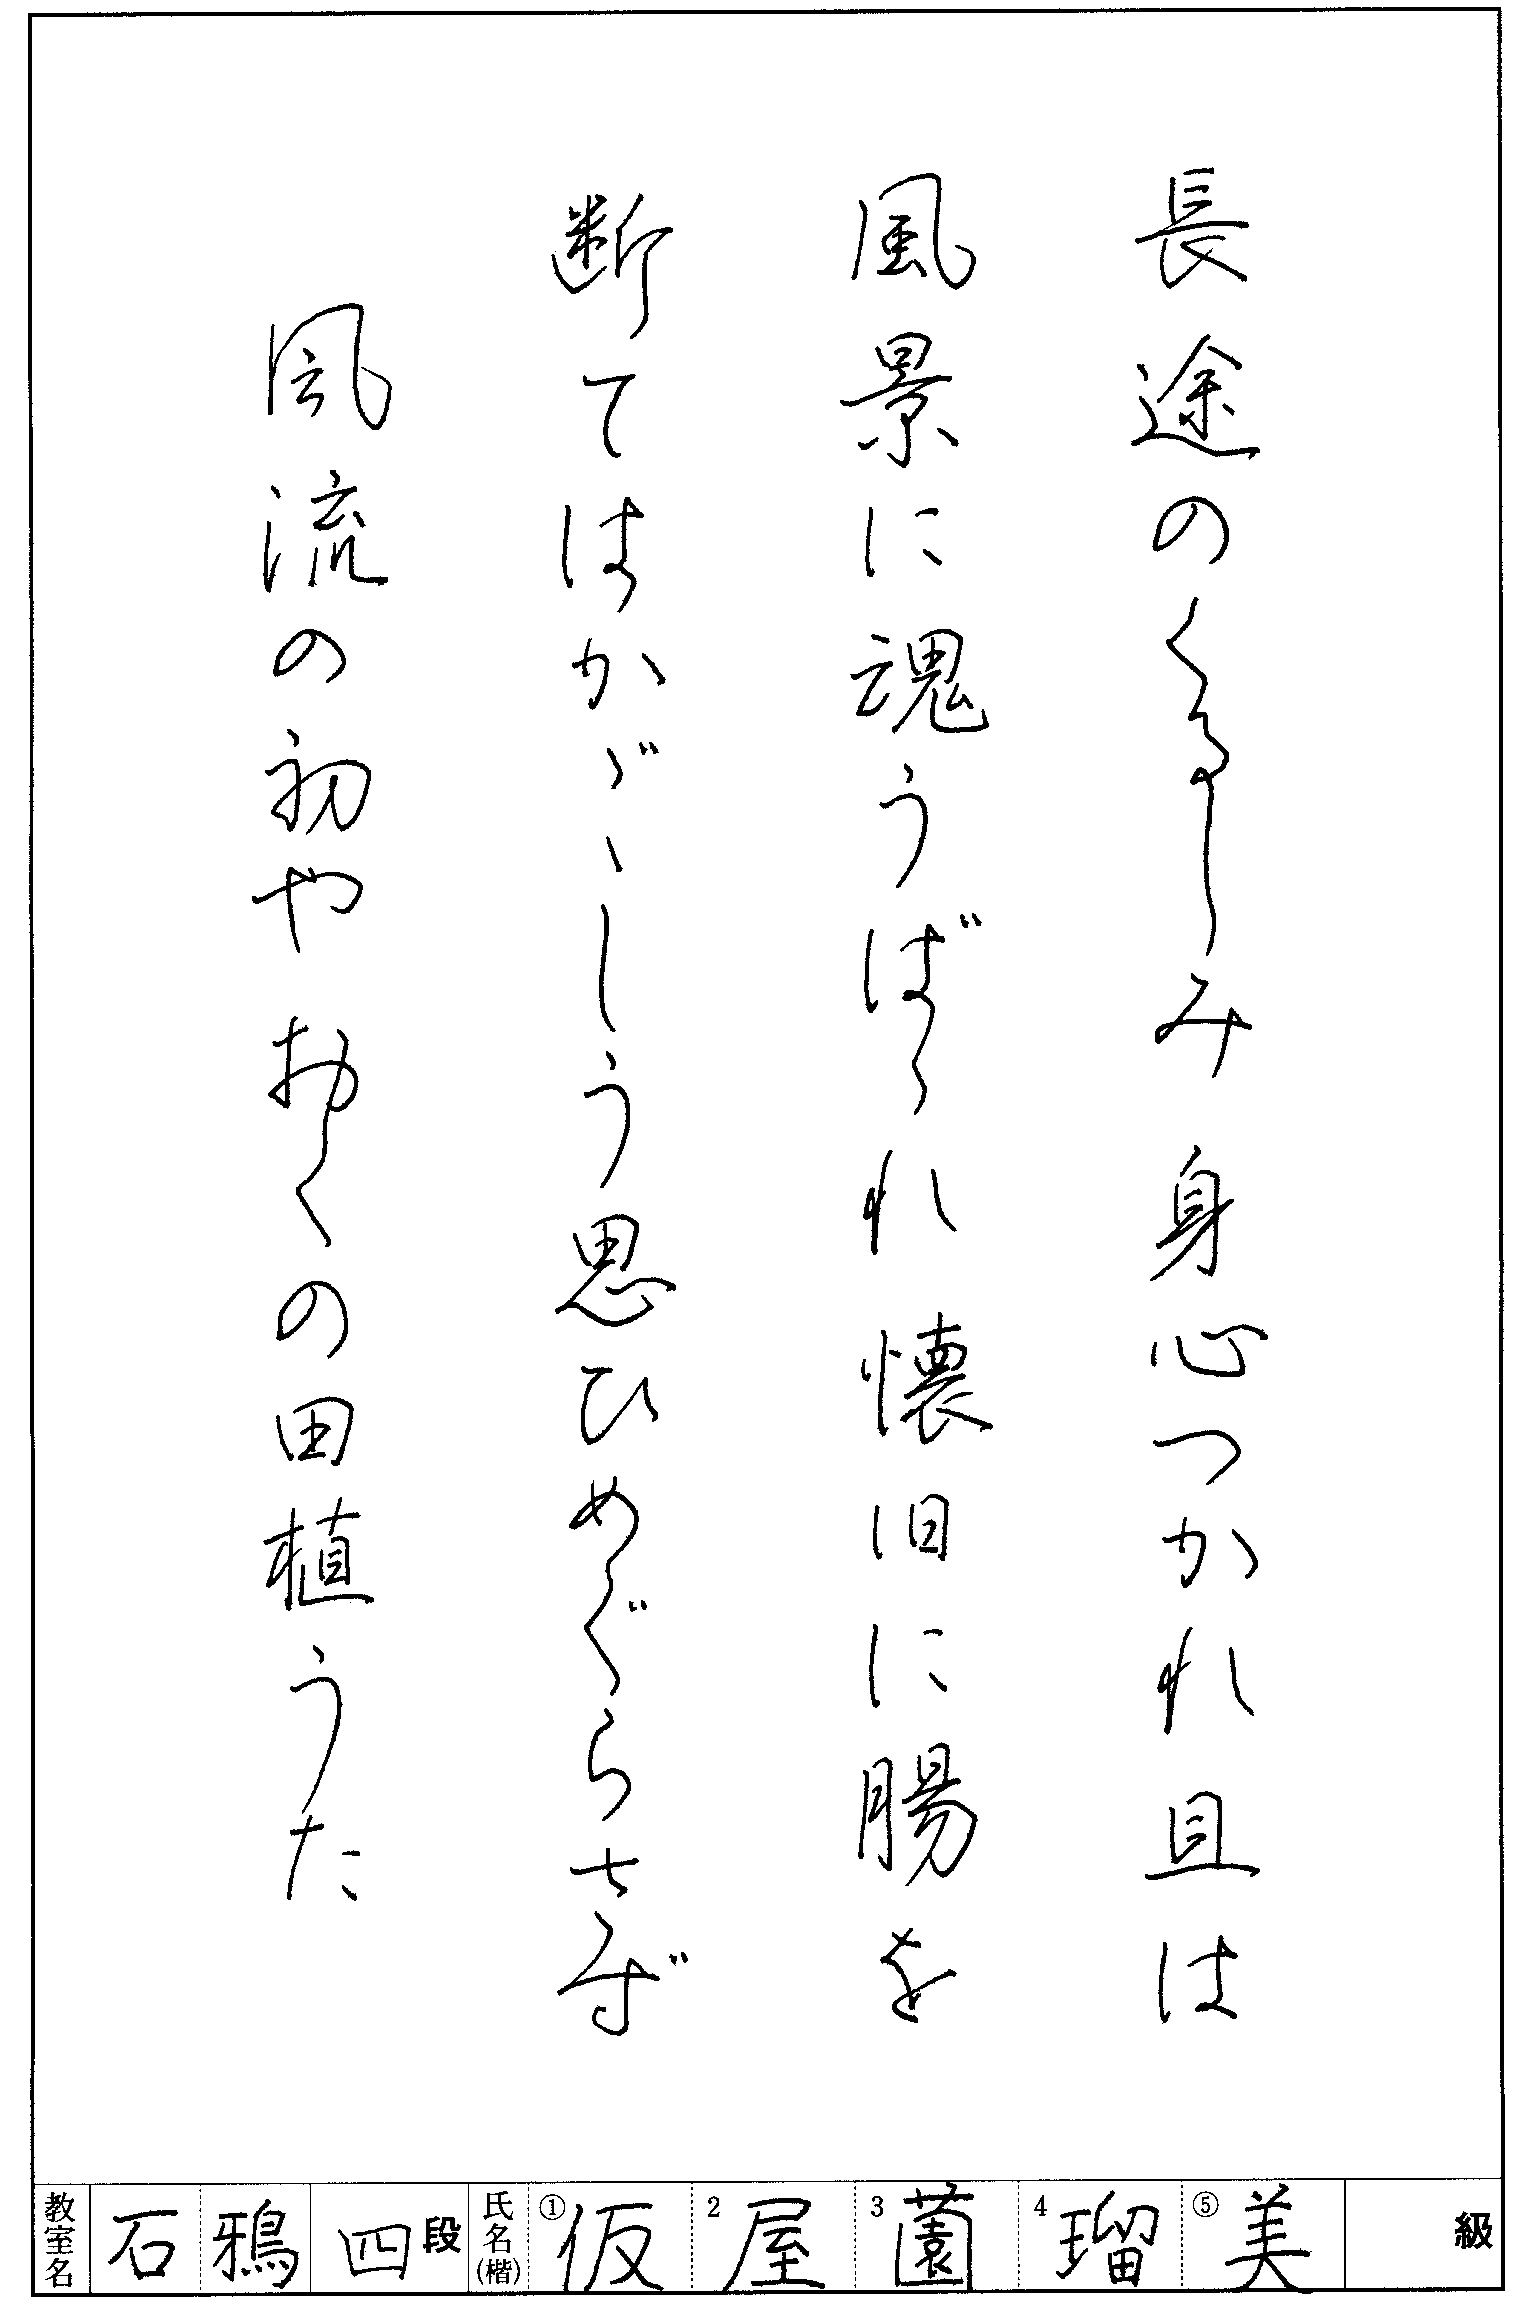 長途のくるしみ身心つかれ且は
風景に魂うばゝれ懐旧に腸を
断てはかゞゝしう思ひめぐらさず
風流の初やおくの田植うた
教室名 石 鴉 四 段 氏名(楷) ① 仮 2 屋 3 薗 4 瑠 ⑤ 美 級